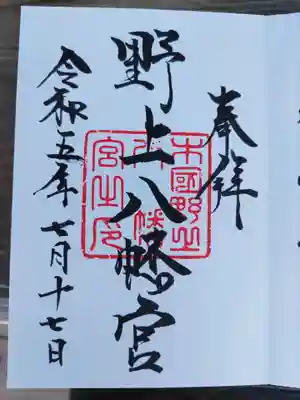 奉拝
野上八幡宮
木國野上
八幡
宮之印
令和五年七月十七日